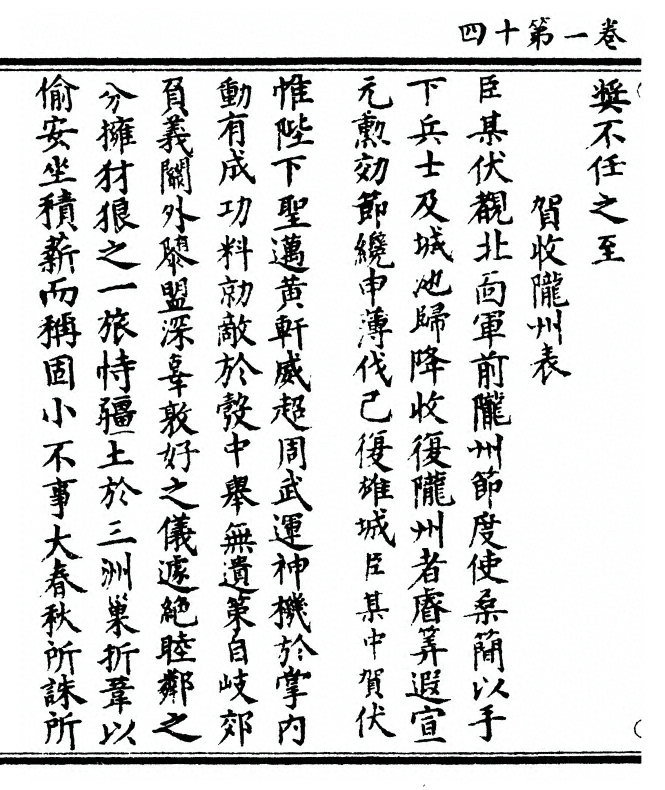 卷一第十四
奨不任之至
賀收隴州表
臣某伏覩北面軍前隴州節度使桑簡以手
下兵士及城池歸降收復隴州者睿筭遐宣
元勲効節纔申薄伐已復雄城臣某中賀伏
惟陛下聖邁黄軒威超周武運神機於掌内
動有成功料勍敵於彀中舉無遺策自岐郊
負義關外隳盟深辜敦好之儀遽絶睦鄰之
分擁犲狼之一旅恃疆土於三洲巢折葦以
偷安坐積薪而稱固小不事大春秋所誅所